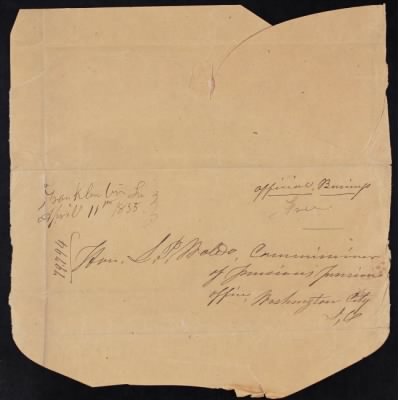 Franklin
April 11th 1855
official Business
Free
79794
Hon. L. P. Waldo, Commissioner
of Pensions Pension
office, Washington City
D, C,